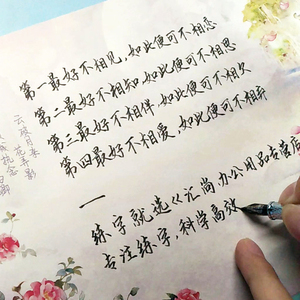 第一最好不相见,如此便可不相恋
第二最好不相知,如此便可不相思
第三最好不相伴,如此便可不相欠
第四最好不相爱,如此便可不相弃
一
练字就选巜沅尚办公用品专营店
专注练字,科学高效